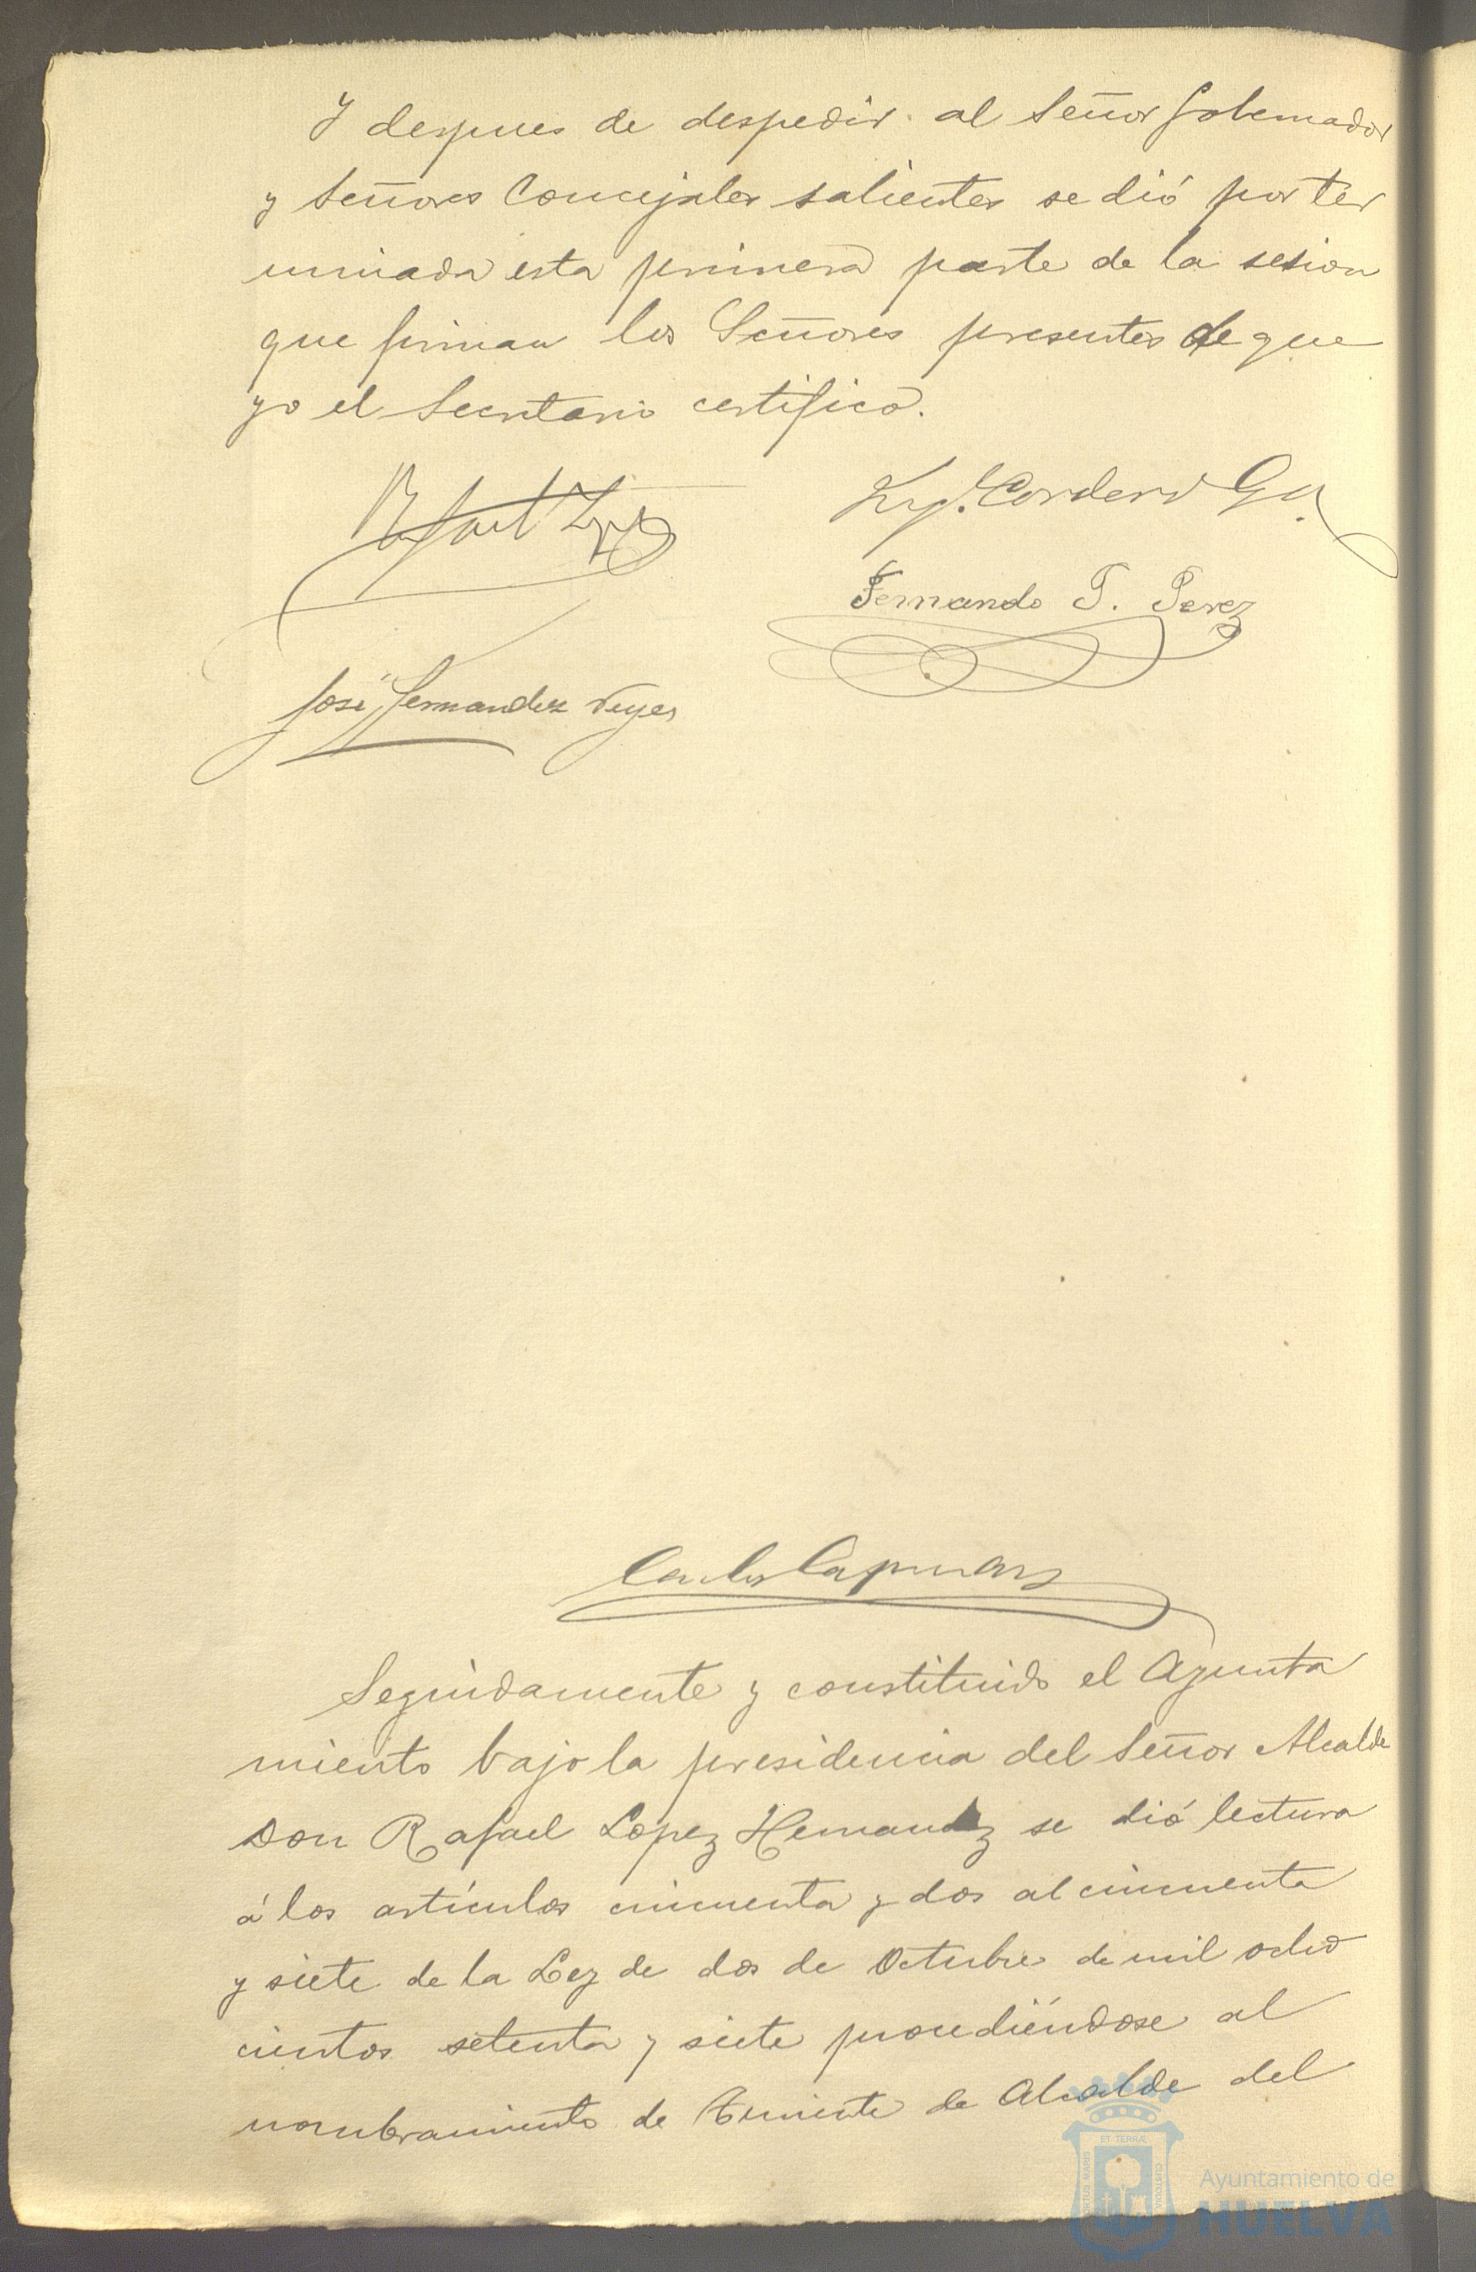 Y despues de despedir al Señor Gobernador
y Señores Concejales salientes se dió por ter
minada esta primera parte de la sesion
que firman los Señores presentes de que
yo el Secretario certifico.
Rafael Lopez
Cordero
Fernando T. Perez
José Fernandez Reyes
Carlos
Seguidamente y constituido el Ayunta
miento bajo la presidencia del Señor Alcalde
Don Rafael Lopez Hernandez se dió lectura
á los artículos cincuenta y dos al cincuenta
y siete de la Ley de dos de Octubre de mil ocho
cientos setenta y siete procediéndose al
nombramiento de Teniente de Alcalde del
ET TERRÆ
PORTUS MARIS
CUSTODIA
Ayuntamiento de
HUELVA